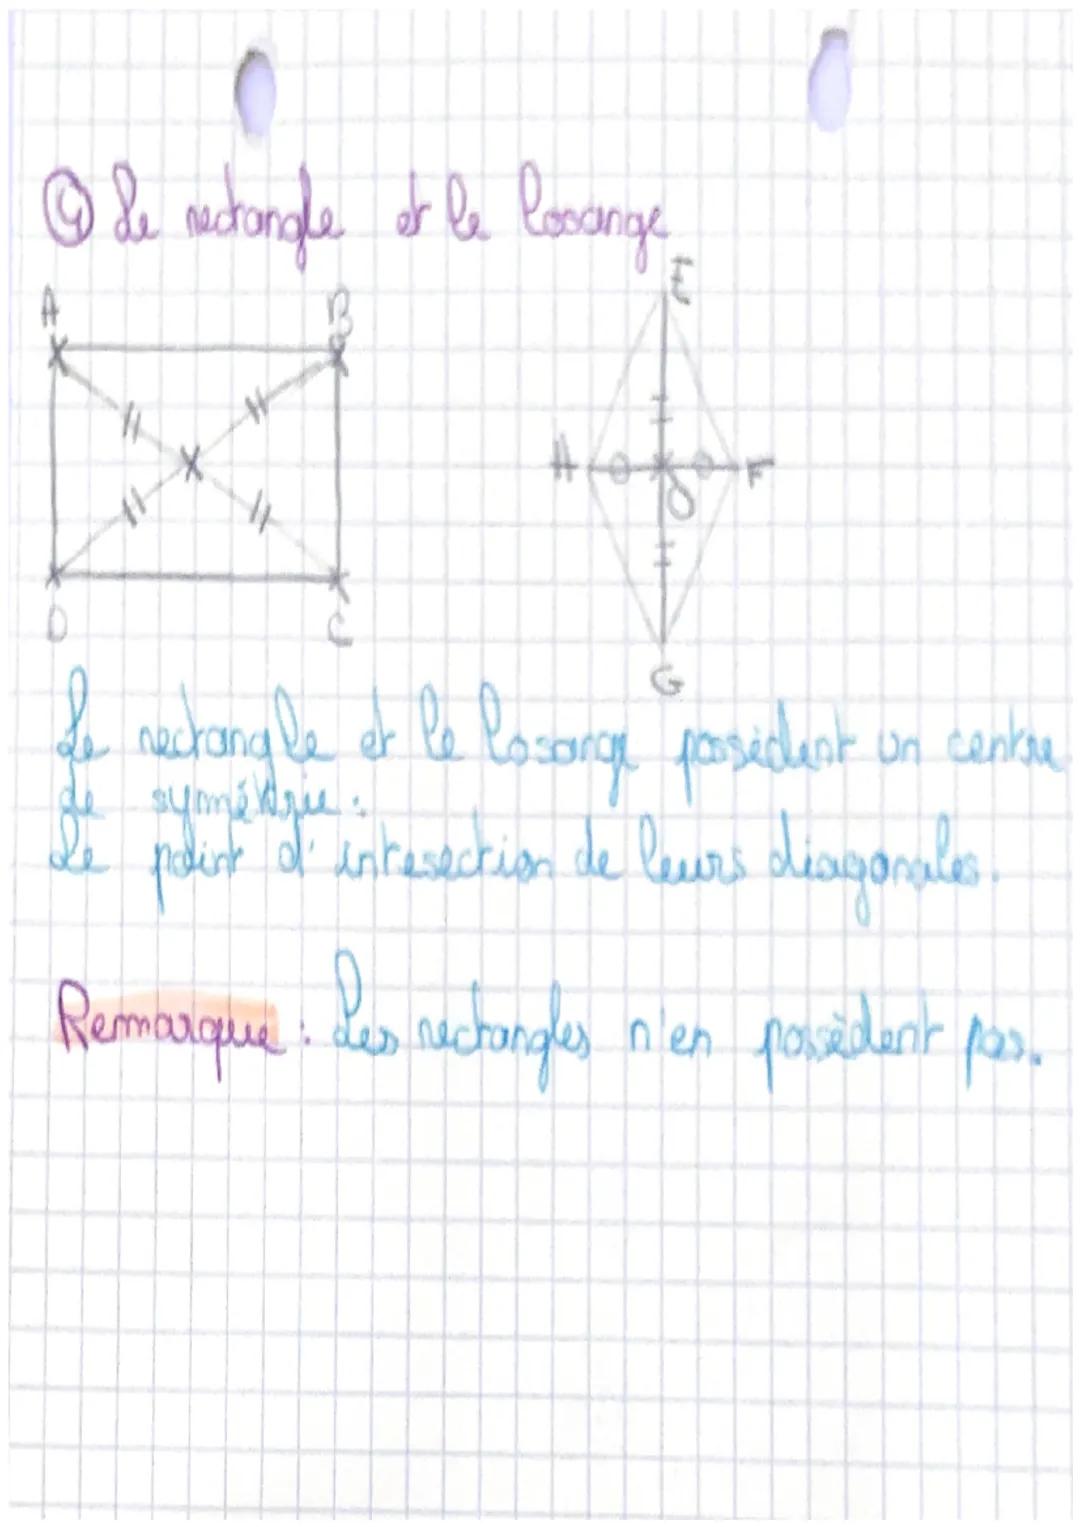 ④ Le rectangle et le losange
A B
E
H F
O
D C
G
Le rectangle et le losange possèdent un centre
de symétrie :
Le point d'intesection de leurs diagonales.
Remarque : Les rectangles n'en possèdent pas.